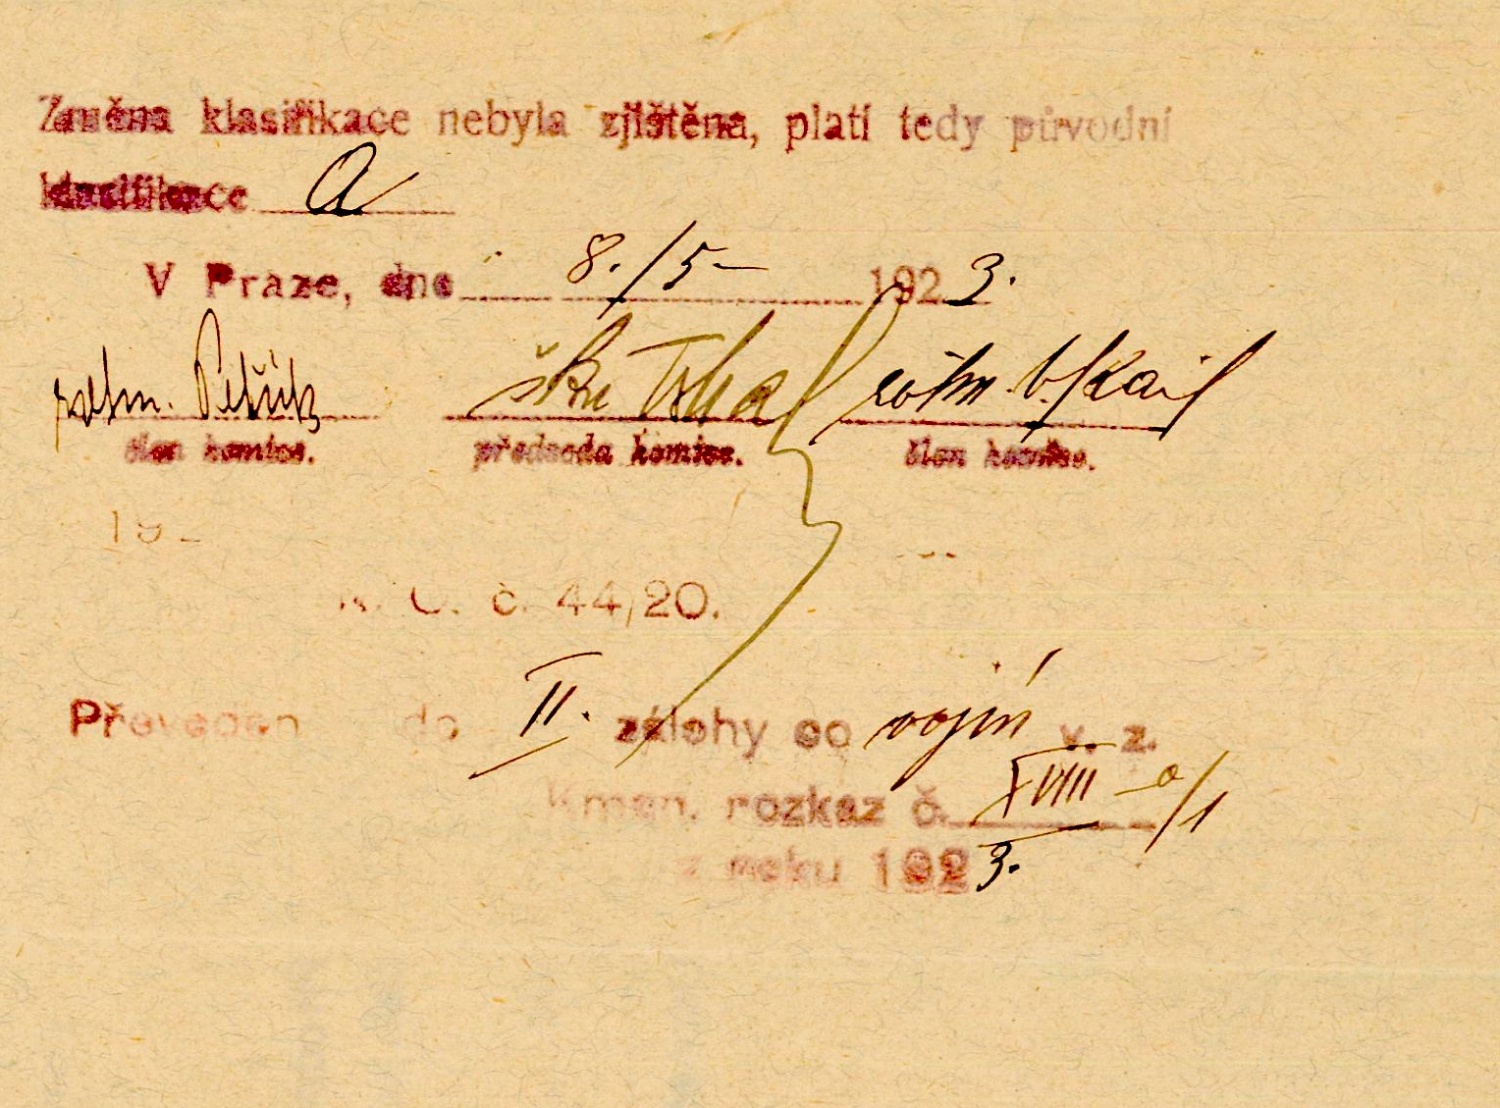 Změna klasifikace nebyla zjištěna, platí tedy původní
klasifikace A
V Praze, dne 8./5 1923.
rotm. Petřík
člen komise. předseda komise. člen komise.
192
č. 44/20.
Převeden do II. zálohy co vojín v. z.
Kmen. rozkaz č. XVIII-a/1
z roku 1923.